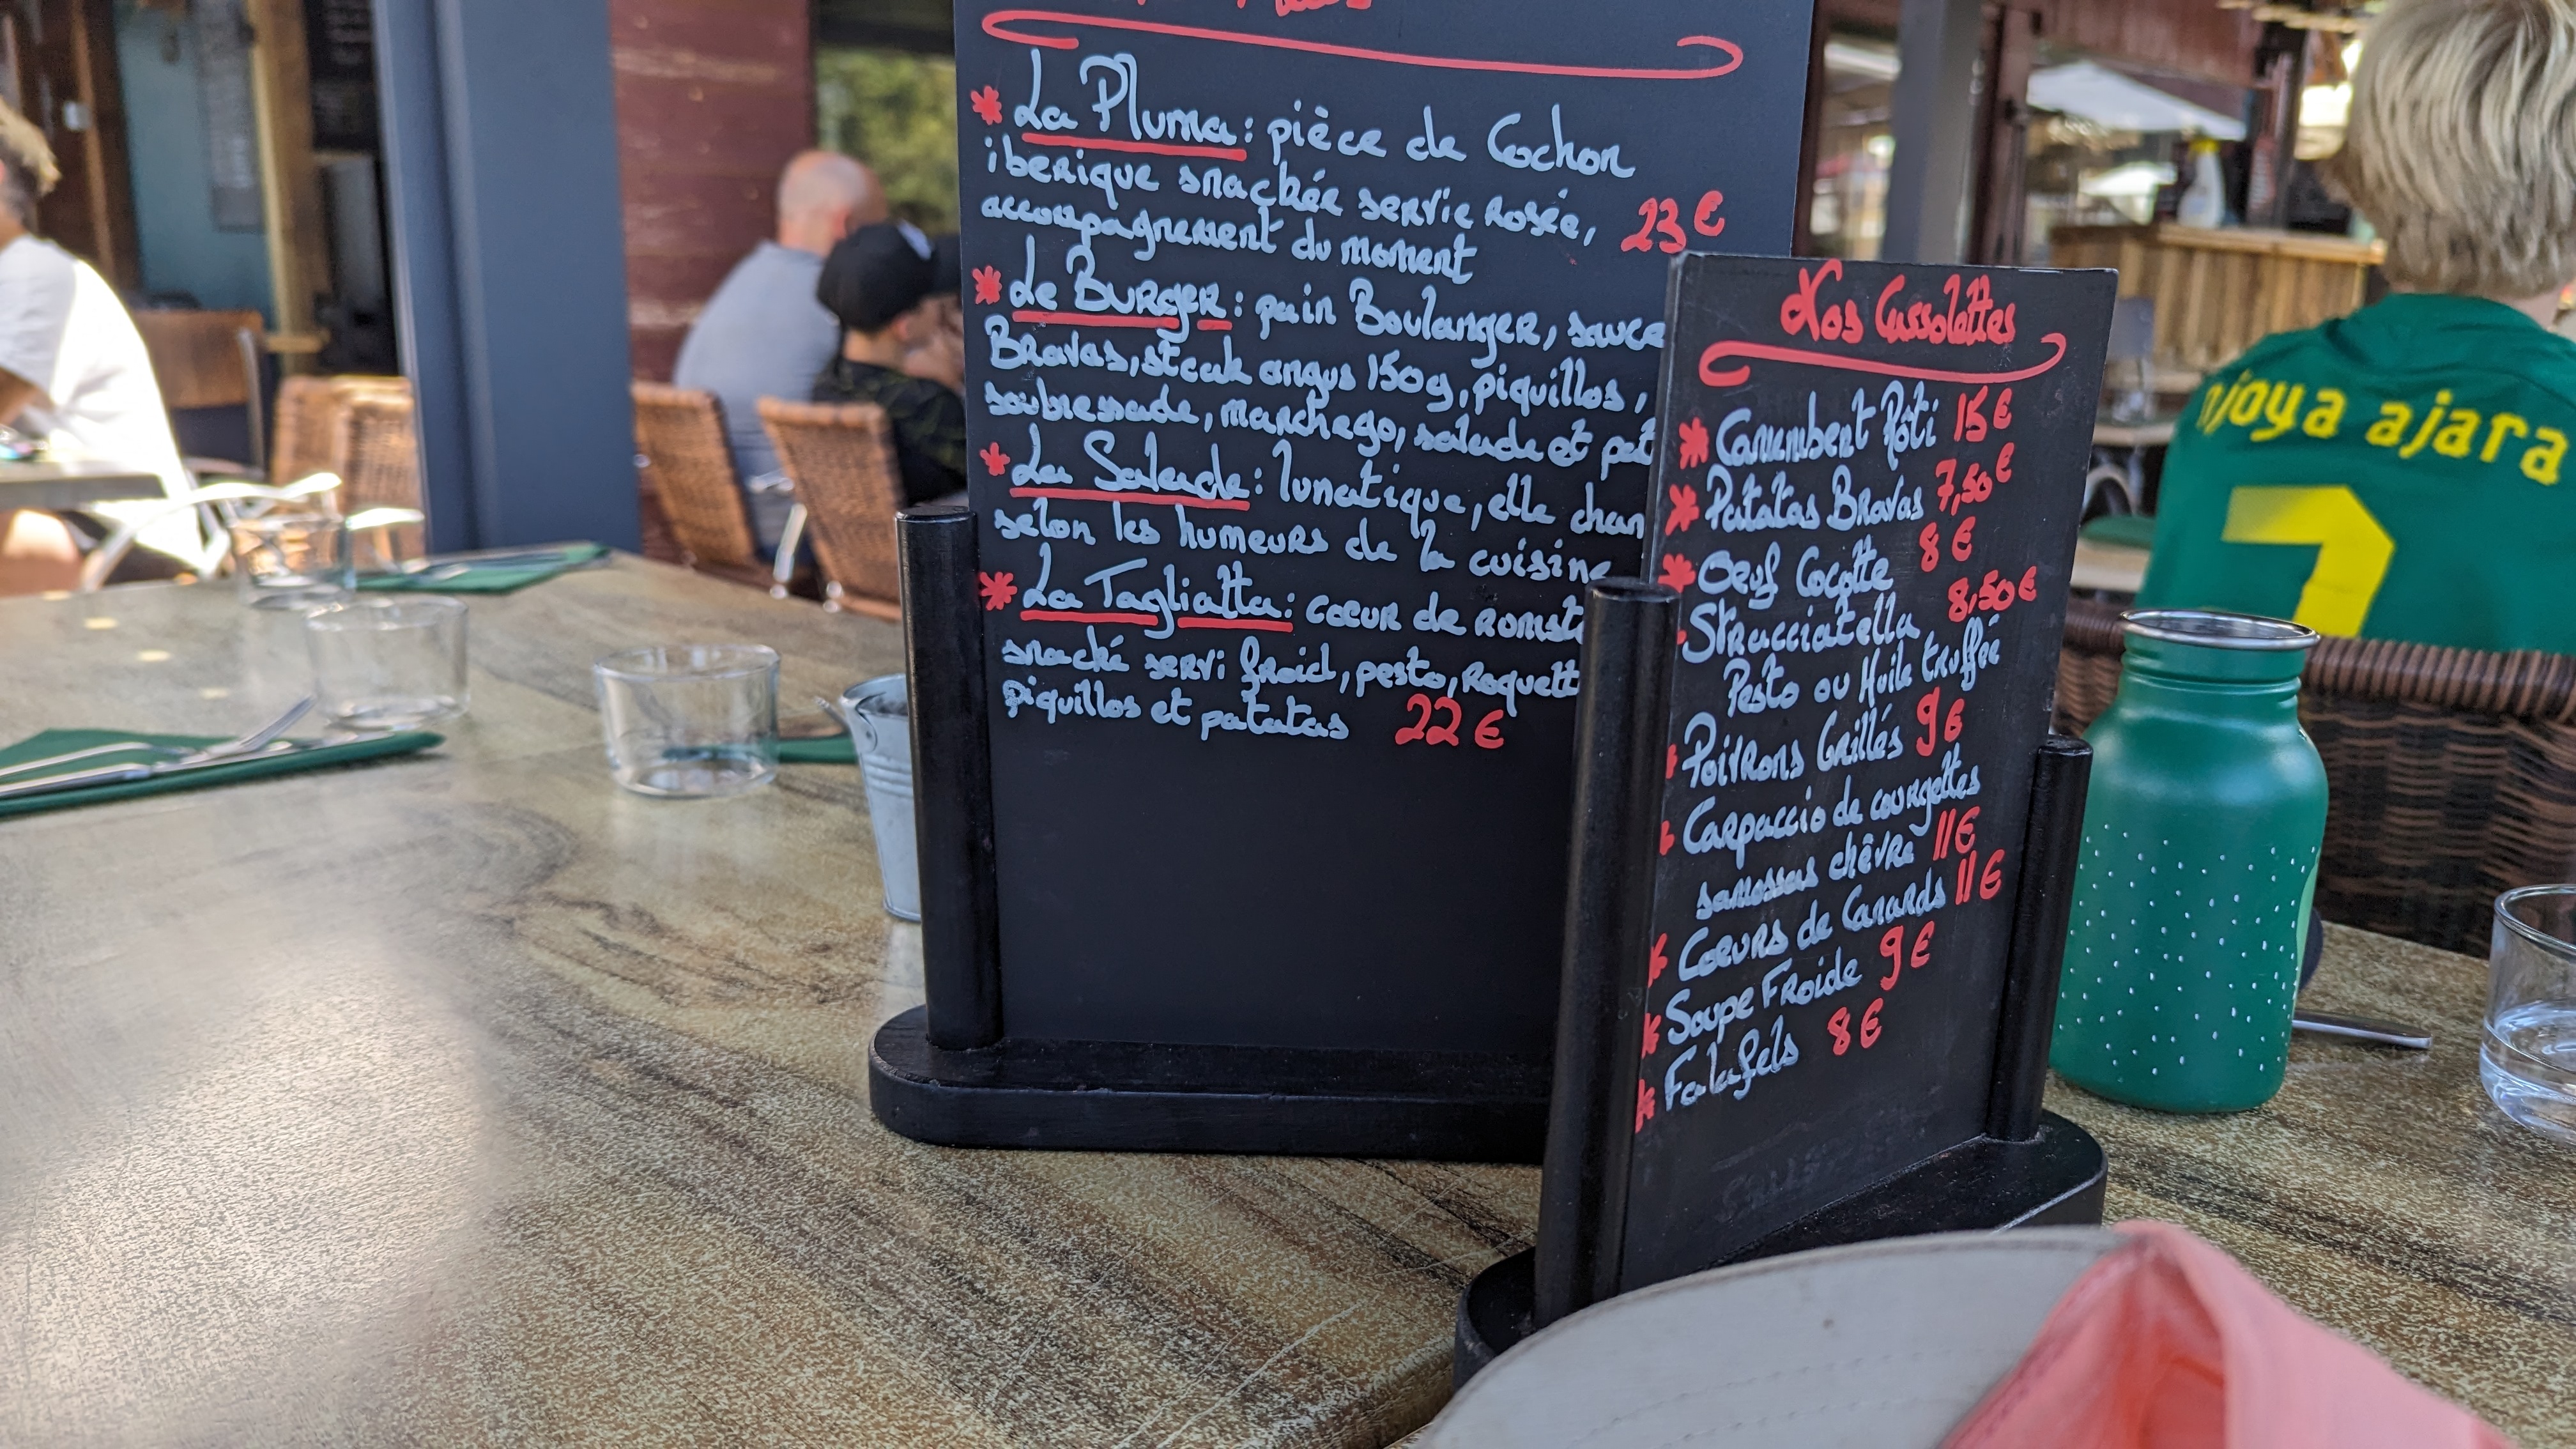 * La Pluma : pièce de Cochon
iberique snackée servie rosée,
accompagnement du moment 23€
* Le Burger : pain Boulanger, sauce
Bravas, steak angus 150g, piquillos,
soubressade, manchego, salade et
* La Salade : lunatique, elle
selon les humeurs de la cuisine
* La Tagliatta : coeur de
snacké servi froid, pesto,
piquillos et patatas 22€
Nos Cassolettes
* Camembert Rôti 15€
* Patatas Bravas 7,50€
* Oeuf Cocotte 8€
* Stracciatella 8,50€
Pesto ou Huile truffée
* Poivrons Grillés 9€
* Carpaccio de courgettes
samossas chèvre 11€
* Coeurs de Canards 11€
* Soupe Froide 9€
* Falafels 8€
njoya ajara
7